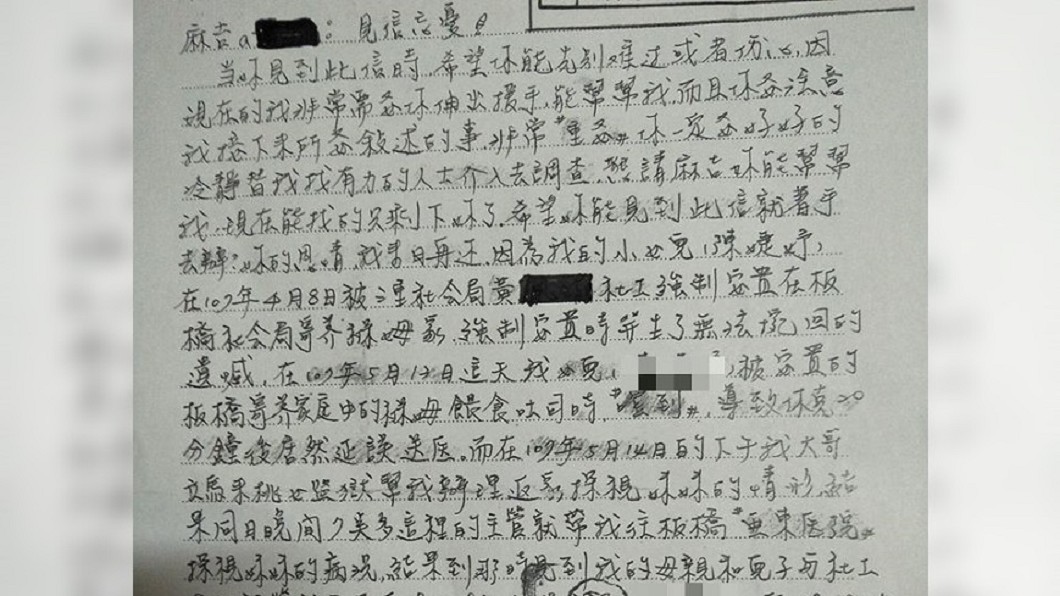 麻吉a：見信忘憂！
當妳見到此信時，希望妳能先别难过或者伤心，因
現在的我非常需要妳伸出援手，能幫幫我，而且妳要注意
我接下來所要敍述的事，非常"重要"妳一定要好好的
冷靜替我找有力的人士介入去調查，懇請麻吉妳能幫幫
我，現在能找的只剩下妳了，希望妳能見到此信就著手
去辦，妳的恩情我來日再还，因為我的小女兒，陳婕妤，
在107年4月8日被三重社会局黃社工強制安置在板
橋社会局寄养保母家，強制安置時发生了無法挽回的
遺憾，在107年5月12日這天我女兒，被安置的
板橋寄养家庭中的保母餵食吐司時"噎到"，導致休克20
分鐘後居然延誤送医。而在107年5月14日的下午我大哥
來桃女監獄幫我辦理返家探視妹妹的情形，結
果同日晚間7点多這裡的主管就帶我往板橋"亞東医院"
探視妹妹的病况，結果到那時見到我的母親和兒子与社工